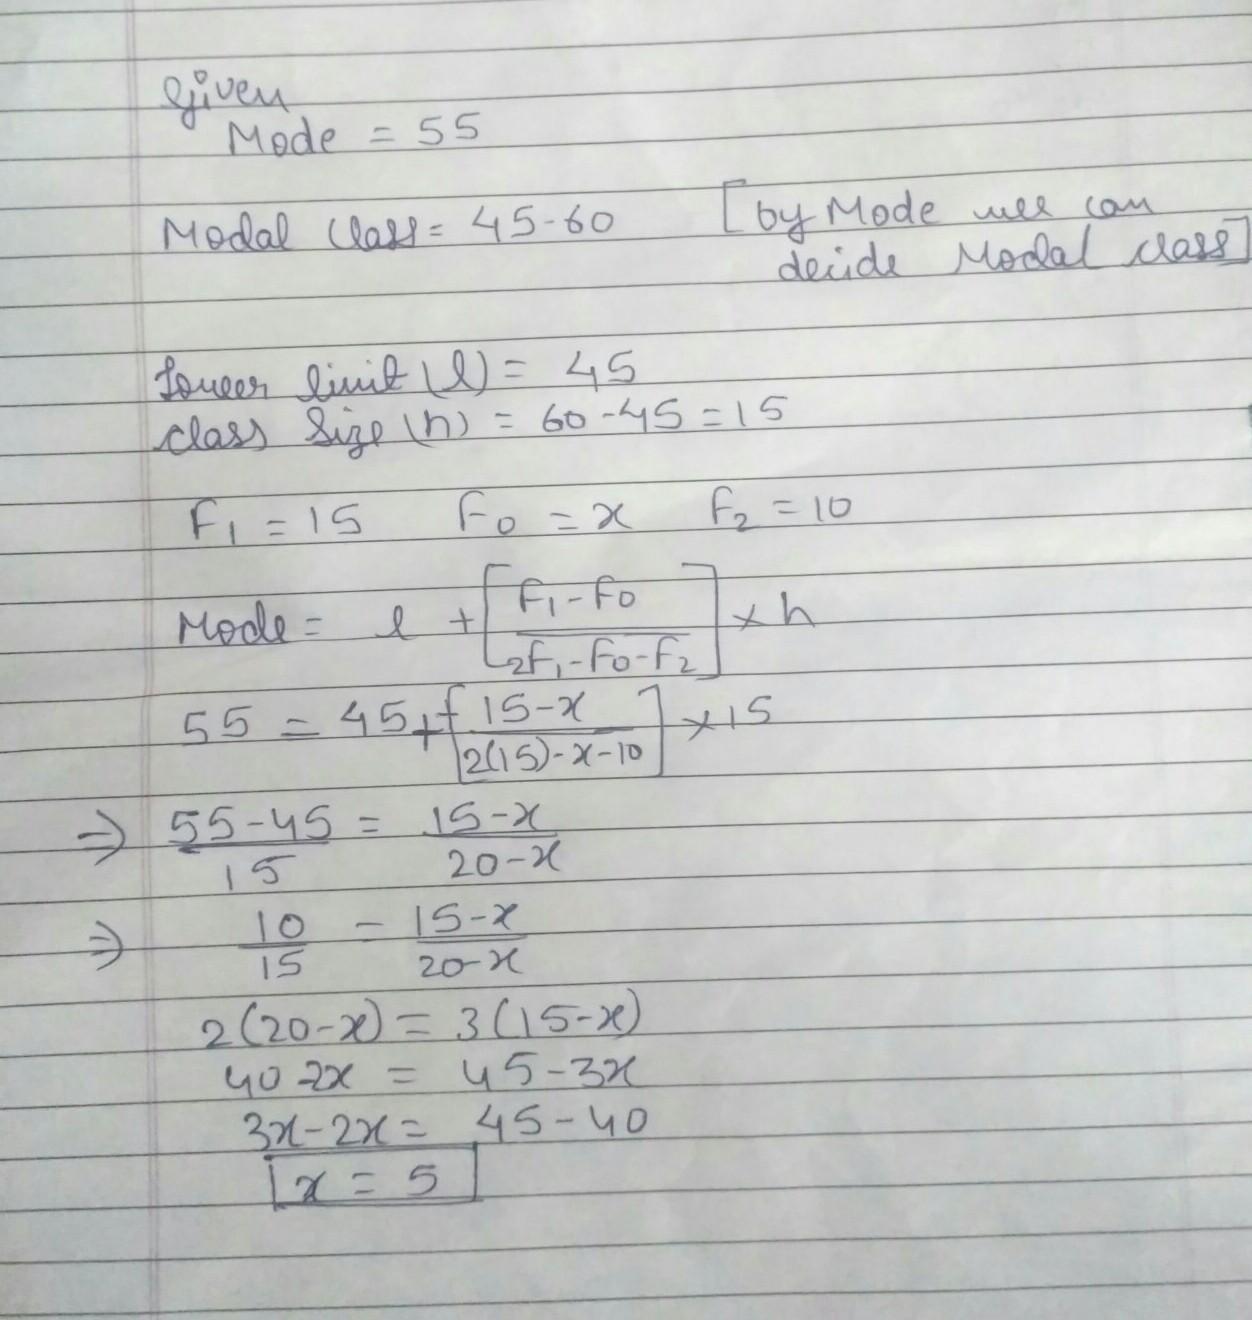 Given
Mode = 55
Modal Class = 45-60 [by Mode we can
decide Modal class]
Lower limit (l) = 45
class Size (h) = 60-45 = 15
F₁ = 15 F₀ = x F₂ = 10
Mode = l + [F₁-F₀ / 2F₁-F₀-F₂] × h
55 = 45 + [15-x / 2(15)-x-10] × 15
⇒ 55-45 / 15 = 15-x / 20-x
⇒ 10 / 15 = 15-x / 20-x
2(20-x) = 3(15-x)
40-2x = 45-3x
3x-2x = 45-40
x = 5